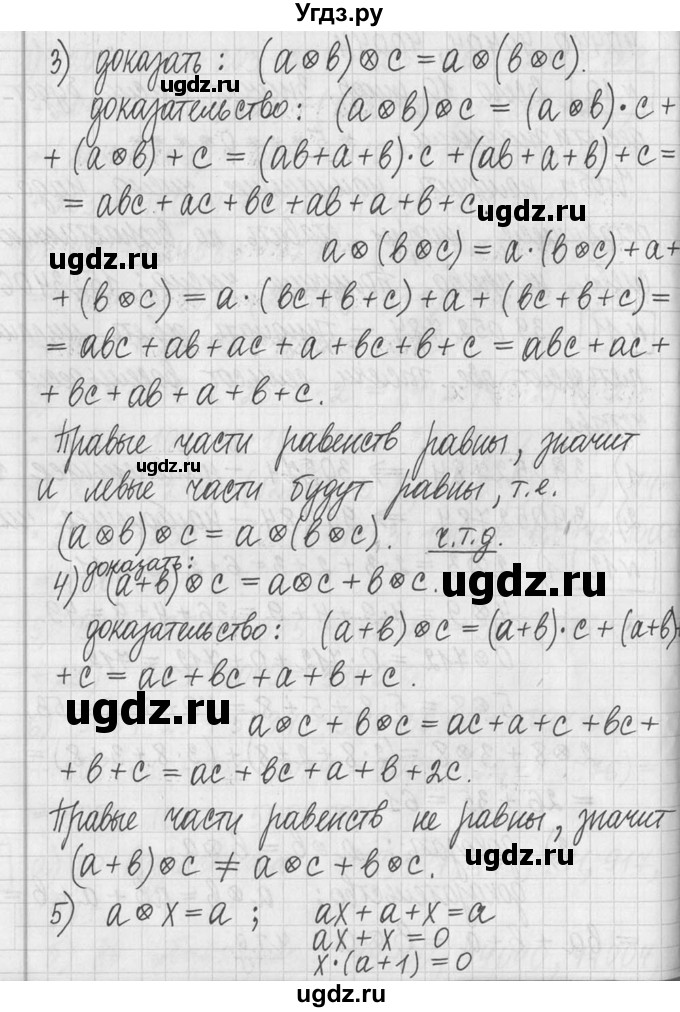 Угдз.ру
3) доказать: (a⊗в)⊗c = a⊗(в⊗c).
доказательство: (a⊗в)⊗c = (a⊗в)·c +
+ (a⊗в) + c = (aв+a+в)·c + (aв+a+в) + c =
= aвc + ac + вc + aв + a + в + c
ugdz.ru
ugdz.ru
a⊗(в⊗c) = a·(в⊗c) + a +
+ (в⊗c) = a·(вc+в+c) + a + (вc+в+c) =
= aвc + aв + ac + a + вc + в + c = aвc + ac +
+ вc + aв + a + в + c.
Правые части равенств равны, значит
ugdz.ru
и левые части будут равны, т.е.
(a⊗в)⊗c = a⊗(в⊗c). ч.т.д.
4) доказать: (a+в)⊗c = a⊗c + в⊗c.
ugdz.ru
доказательство: (a+в)⊗c = (a+в)·c + (a+в)+
+ c = ac + вc + a + в + c.
ugdz.ru
a⊗c + в⊗c = ac + a + c + вc +
+ в + c = ac + вc + a + в + 2c.
Правые части равенств не равны, значит
(a+в)⊗c ≠ a⊗c + в⊗c.
ugdz.ru
5) a⊗x = a; ax + a + x = a
ax + x = 0
x·(a+1) = 0
ugdz.ru